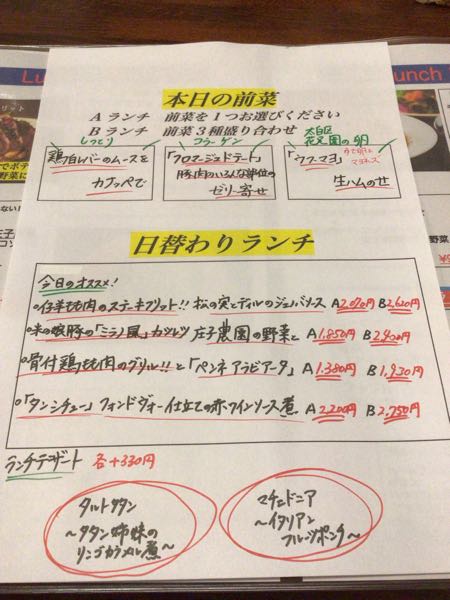 Lu
unch
本日の前菜
Aランチ 前菜を1つお選びください
Bランチ 前菜3種盛り合わせ
しっとり
鶏白レバーのムースを
カナッペで
コラーゲン
「フロマージュドテート」
豚肉のいろんな部位の
ゼリー寄せ
太白区
花兄園の卵
「ウフマヨ」
ゆで卵と
マヨネーズ
生ハムのせ
日替わりランチ
今日のオススメ!
仔羊もも肉のステーキフリット!! 松の実とディルのジェノバソース A2,070円 B2,620円
米の娘豚の「ミラノ風」カツレツ 庄子農園の野菜と A1,850円 B2,400円
骨付鶏もも肉のグリル!!と「ペンネアラビアータ」 A1,380円 B1,930円
「タンシチュー」フォンドヴォー仕立ての赤ワインソース煮 A2,200円 B2,750円
ランチデザート 各+330円
タルトタタン
~タタン姉妹の
リンゴカラメル煮~
マチェドニア
~イタリアン
フルーツポンチ~